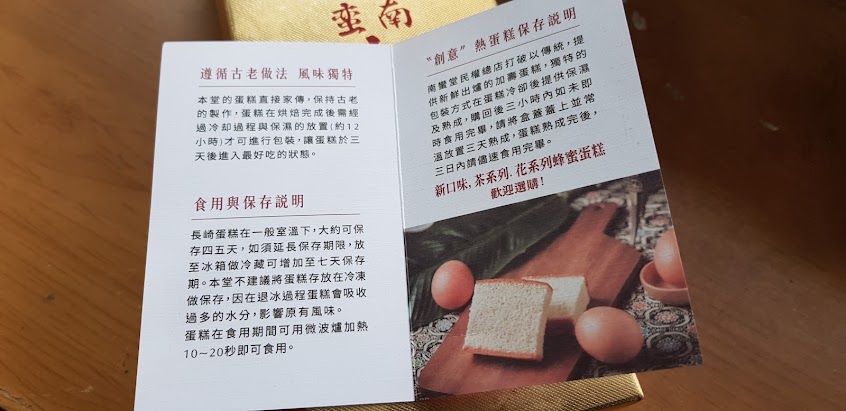 南蠻
遵循古老做法 風味獨特
本堂的蛋糕直接家傳，保持古老
的製作，蛋糕在烘焙完成後需經
過冷卻過程與保濕的放置(約12
小時)才可進行包裝，讓蛋糕於三
天後進入最好吃的狀態。
食用與保存説明
長崎蛋糕在一般室溫下，大約可保
存四五天，如須延長保存期限，放
至冰箱做冷藏可增加至七天保存
期。本堂不建議將蛋糕存放在冷凍
做保存，因在退冰過程蛋糕會吸收
過多的水分，影響原有風味。
蛋糕在食用期間可用微波爐加熱
10~20秒即可食用。
“創意” 熱蛋糕保存説明
南蠻堂民權總店打破以傳統，提
供新鮮出爐的加壽蛋糕，獨特的
包裝方式在蛋糕冷卻後提供保濕
及熟成，購回後三小時內如未即
時食用完畢，請將盒蓋蓋上並常
溫放置三天熟成，蛋糕熟成完後，
三日內請儘速食用完畢。
新口味，茶系列.花系列蜂蜜蛋糕
歡迎選購！